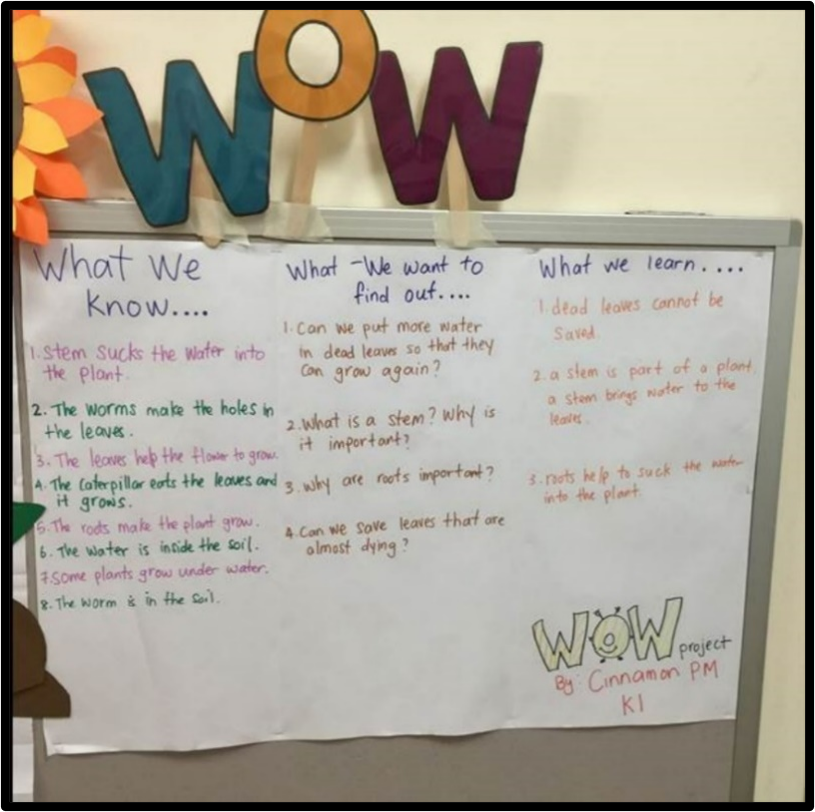 WOW
What We
Know....
1. Stem Sucks the Water into
the plant.
2. The worms make the holes in
the leaves.
3. The leaves help the flower to grow.
4. The Caterpillar eats the leaves and
it grows.
5. The roots make the plant grow.
6. The water is inside the soil.
7. Some plants grow under water.
8. The worm is in the Soil.
What -We want to
find out....
1. Can we put more water
in dead leaves so that they
can grow again?
2. What is a stem? Why is
it important?
3. Why are roots important?
4. Can we save leaves that are
almost dying?
What we learn....
1. dead leaves cannot be
Saved.
2. a stem is part of a plant.
a stem brings water to the
leaves.
3. roots help to suck the water
into the plant.
WOW project
By: Cinnamon PM
K1